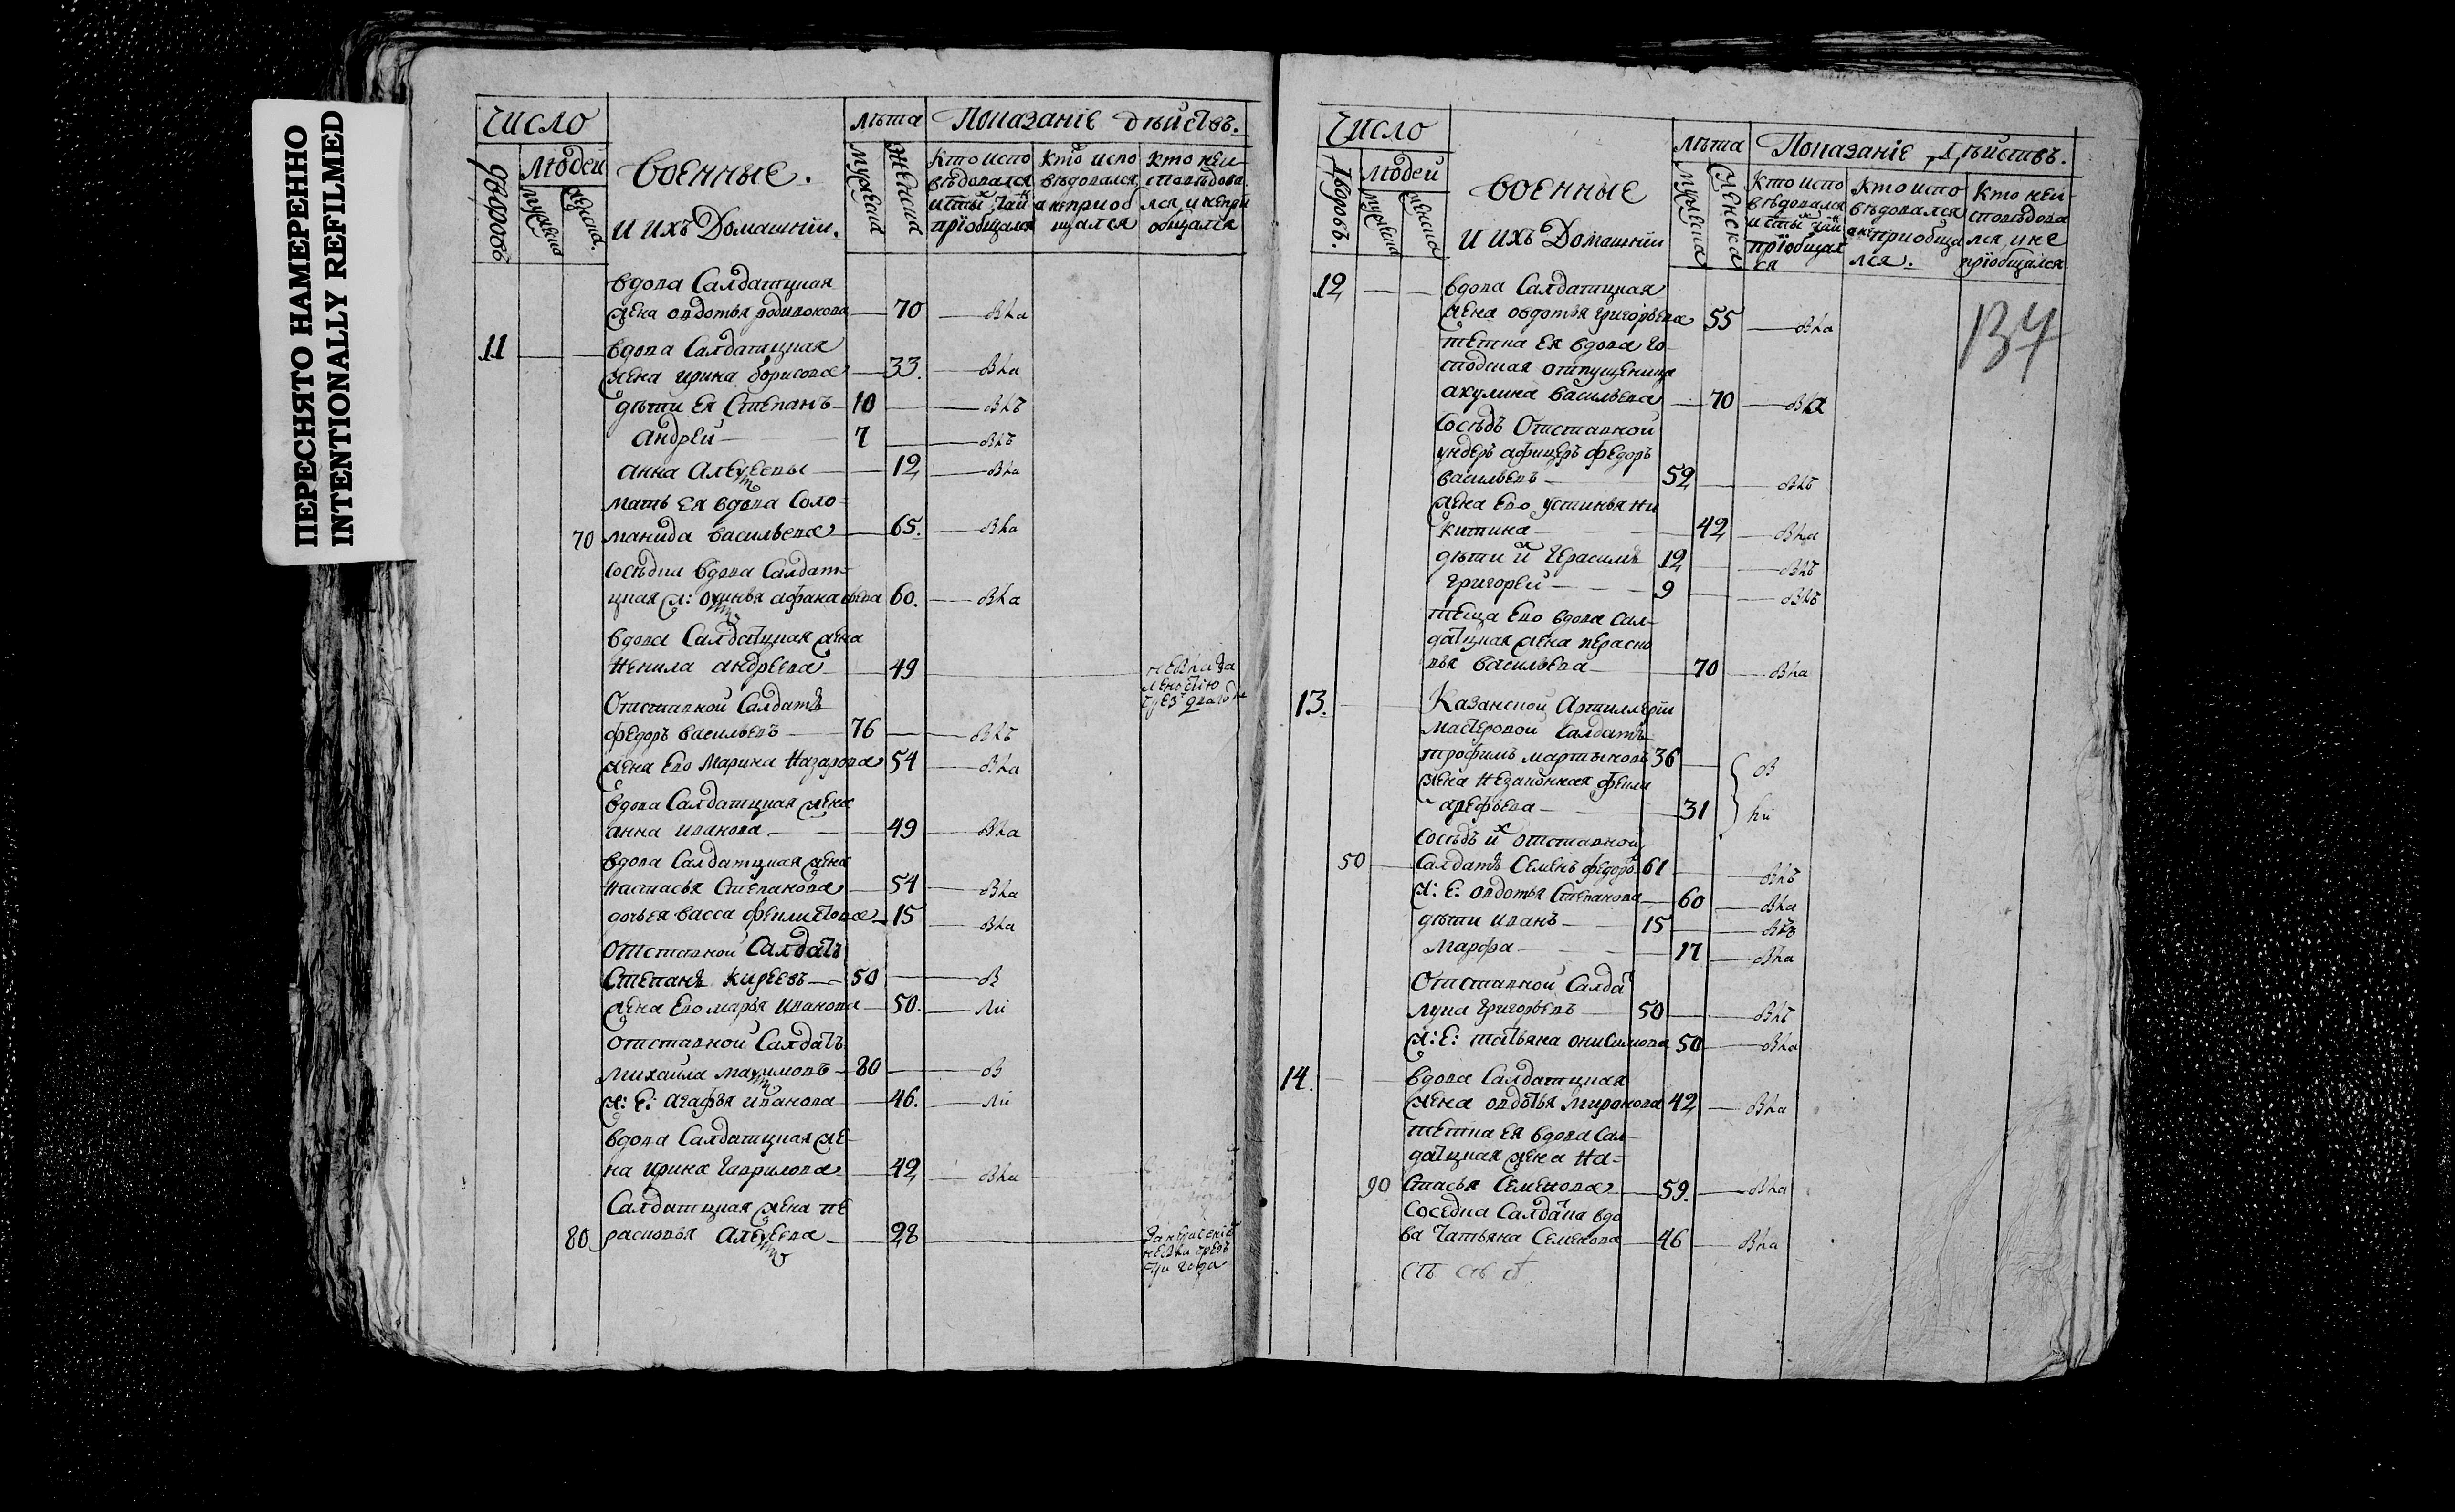 ПЕРЕСНЯТО НАМЕРЕННО
INTENTIONALLY REFILMED
Число
Людей
дворовъ
мужеска
женска.
Военные.
И ихъ Домашніи.
лѣта
мужеска
Женска
Показаніе дѣйствъ.
Кто испо
вѣдовался
и сты҃х Тайн
пріобщался
Кто испо
вѣдовался,
а не приоб
щался
Кто неи
сповѣдова
лся, и непри
общался
вдова Салдатцкая
жена овдотья родивонова — 70 — Вка
11 — — вдова Салдатцкая
жена ирина борисова — 33. — Вка
дѣти Ея Степанъ — 10 — Вкъ
андрей — 7 — Вкъ
анна Алеѯеевы — 12 — Вка
мать Ея вдова Соло-
70 манида васильева — 65. — Вка
Сосѣдка вдова Салдат-
цкая ж: аѯинья афанасьева 60. — Вка
вдова Салдатцкая жена
Ненила андреева — 49
Отставной Салдатъ
федоръ васильевъ — 76 — Вкъ
жена Ево Марина Назарова 54 — Вка
вдова Салдатцкая жена
анна иванова — 49 — Вка
вдова Салдатцкая жена
настасья Степанова — 54 — Вка
дочь ея васса филистова — 15 — Вка
отставной Салдатъ
Степанъ киреевъ — 50 — В
жена Ево марья иванова — 50. — ли
отставной Салдатъ
михайла маѯимовъ — 80 — В
ж: Е: агафья иванова — 46. — ли
вдова Салдатцкая же-
на ирина гаврилова — 42 — Вка
Салдатцкая жена пе
80 расковья Алеѯеева — 28
Число
Дворовъ.
людей
мужеска
женска
военные
И ихъ Домашніи
лѣта
мужеска
Женска
Показаніе дѣйствъ.
Кто испо
вѣдовался
и сты҃х Тайн
пріобщал
ся
Кто испо
вѣдовался
а не приобща
лся.
Кто неи
сповѣдова
лся, и не
пріобщался
137
12 — — вдова Салдатцкая
жена овдотья григорьева 55 — Вка
тетка Ея вдова го-
сподская отпущеница
акулина васильева — 70 — Вка
Сосѣдъ Отставной
ундеръ афицеръ федоръ
васильевъ — 52 — Вкъ
жена Ево устинья ни
китина — 42 — Вка
дѣти их Герасимъ 12 — Вкъ
григорей — 9 — Вкъ
теща Ево вдова Сал-
датцкая жена пераско
вья васильева — 70 — Вка
13. Казанской Артиллеріи
мастеровой Салдатъ
трофимъ мартыновъ 36 — В
жена незаконная фекла
арефьева — 31 ки
Сосѣдъ их отставной
50 Салдатъ Семенъ федоров 61 — Вкъ
ж: Е: овдотья Степанова — 60 — Вка
дѣти иванъ — 15 — Вкъ
Марфа — 17 — Вка
Отставной Салдат
лука григорьевъ — 50 — Вкъ
ж: Е: татьяна онисимова 50 — Вка
14. вдова Салдатцкая
жена овдотья миронова 42 — Вка
тетка Ея вдова Сал-
датцкая жена На-
90 стасья Семенова — 59. — Вка
Соседка Салдатка вдо
ва Татьяна Семенова — 46 — Вка